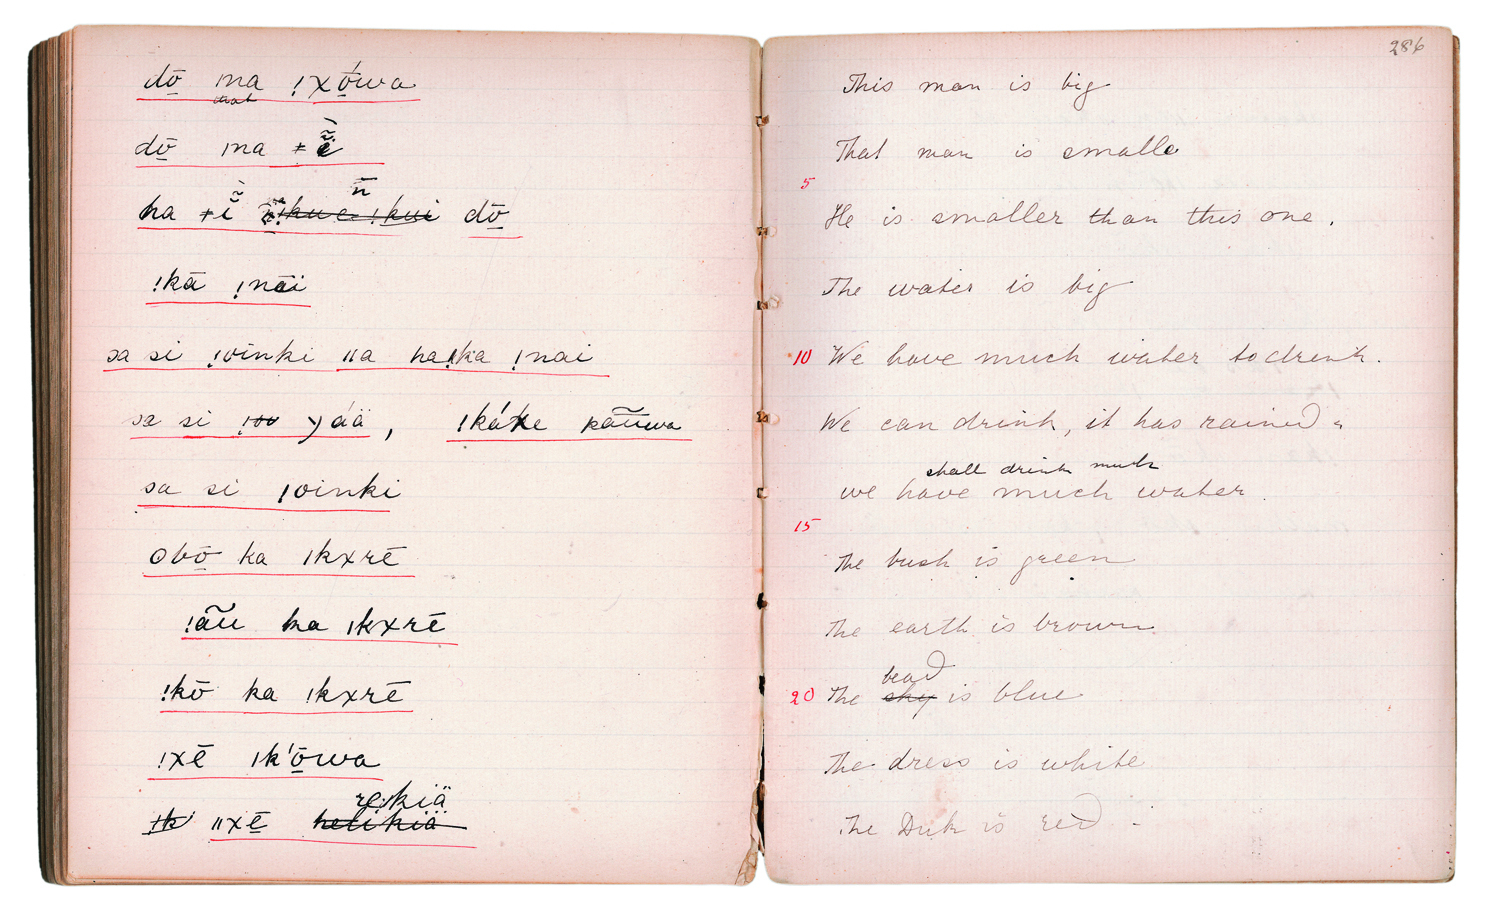 dō ma !xṓwa
that
dō ma ǂĩ̀
ha ǂĩ̀ dō
n̄
!kā !nāi
sa si !oinki ǁa ha ǀka !nai
sa si yáä, ǀkáke kãūwa
sa si !oinki
obō ka ǀkxrē
!ãū ka ǀkxrē
!kō ka ǀkxrē
!xē ǀk'ōwa
rekiä
ǁxē
286
This man is big
That man is small
5
He is smaller than this one.
The water is big
10 We have much water to drink.
We can drink, it has rained
shall drink much
we have much water.
15
The bush is green
The earth is brown
bead
20 The sky is blue
The dress is white
The is red